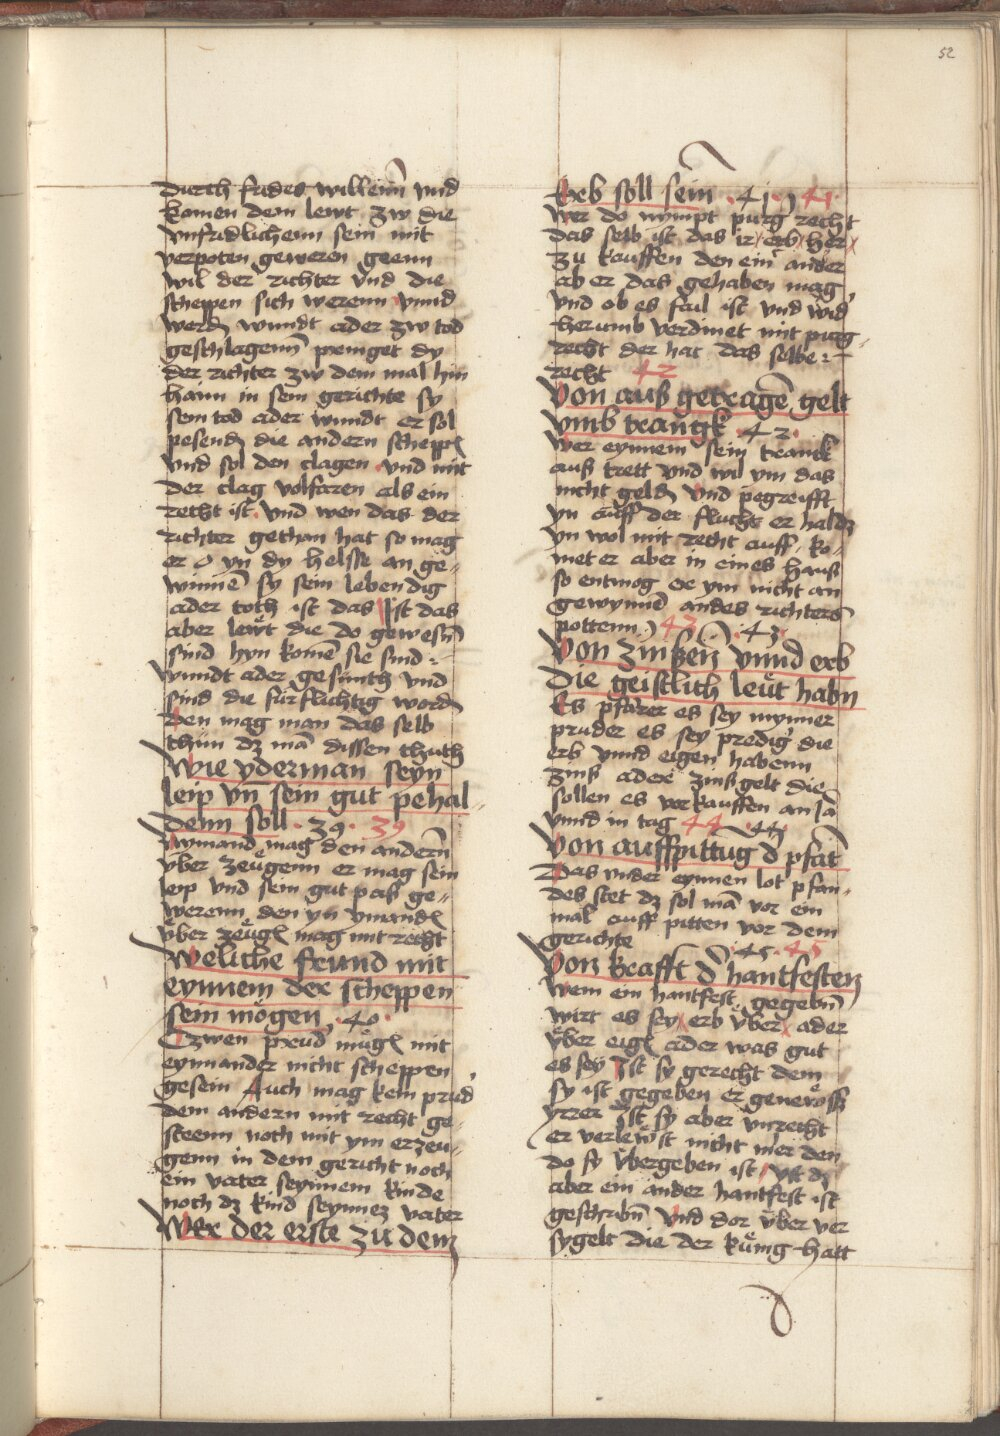 52
durch frides willenn vnd
komen dem lewt zw die
vnfridlichenn sein mit
verpoten geweren geenn
wil der richter vnd die
scheppen sich werenn vnnd
werdn wundt ader zw tod
geschlagenn prenget dy
der richter zw dem mal hin
hainn in sein gerichte sy
sein tod ader wundt er sol
pesendn die andern scheppn
vnd sol den clagen vnd mit
der clag volfaren als ein
recht ist vnd wen das der
richter gethan hat so mag
er yn dy helsse an ge⸗
winnē sy sein lebendig
ader toth ist das Ist das
aber lewt die do gewesen
sind hyn komē sie sind
wundt ader gesunth vnd
sind die furflichtig wordn
Den mag man das selb
thun dz mā dissen thuth
Wie yderman seyn
leip vn̄ sein gut pehal⸗
denn soll · 39 · 39
Nymand mag den andern
vber zeugenn er mag sein
leip vnd sein gut paß ge⸗
werenn den yn ymandn
vber zeugn mag mit recht
Welliche frund mit
eynnem der scheppen
sein mögen · 40 ·
Tzwen prud mugn mit
eynnander nicht scheppen
gesein Auch mag kein prud
dem andern mit recht ge⸗
steenn noch mit ym erzeu⸗
genn in dem gericht noch
ein vater seynnem kinde
noch dz kind seynnez vater
Wer der erste zu dem
Erb soll sein · 41 · 41
Wer do nympt purg recht
das selb ist das ir erb her
zu kauffen den ein ander
ab er das gehaben mag
vnd ob es fail ist vnd wid
herumb verdinet mit purg⸗
recht der hat das selbe
recht 42
Von auß getragē gelt
vmb tranngk · 42 ·
Wer eynnem sein tranck
auß trett vnd wil ym das
nicht geldn vnd pegreifft
yn auff der flucht er haldz
yn wol mit recht auff ko⸗
met er aber in eines hauß
so entmog er ym nicht an
gewynnē andes richters
pottenn 43 · 43 ·
Von zinßen vnnd erb
die geistlich leut habn
Es pfarer es sey mynner
pruder es sey predig die
erb vnnd eigen habenn
zinß ader zinßgelt die
sollen es verkauffen an Ja
vnnd in tag 44 · 44 ·
Von auffpittung d pfat
Das vnder eynnen lot pfan⸗
des stet dz sol mā vor ein
mal auff pitten vor dem
gerichte · 45 · 45
Von krafft d hantfesten
Wem ein hantfest gegebn
wirt es sey erb vber ader
vber eign ader was gut
es sey Ist sy gerecht dem
sy ist gegeben er
yrrer Ist sy aber vnrecht
er verlewst nicht mer den
do sy vbergeben ist Ist dz
aber ein ander hantfest ist
geschribn vnd dor vber ver
sygelt die der kunig hatt